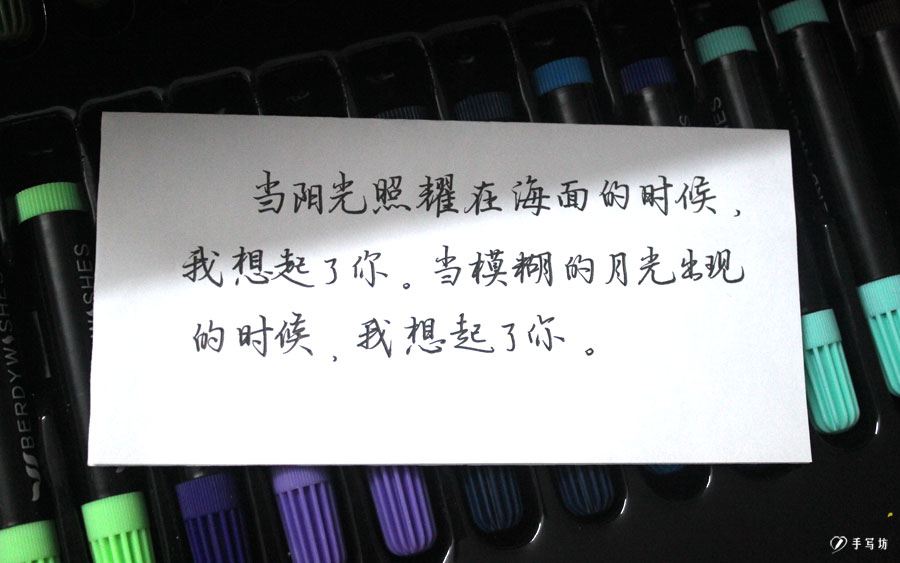 当阳光照耀在海面的时候，
我想起了你。当模糊的月光出现
的时候，我想起了你。
BERDYWASHES
手写坊